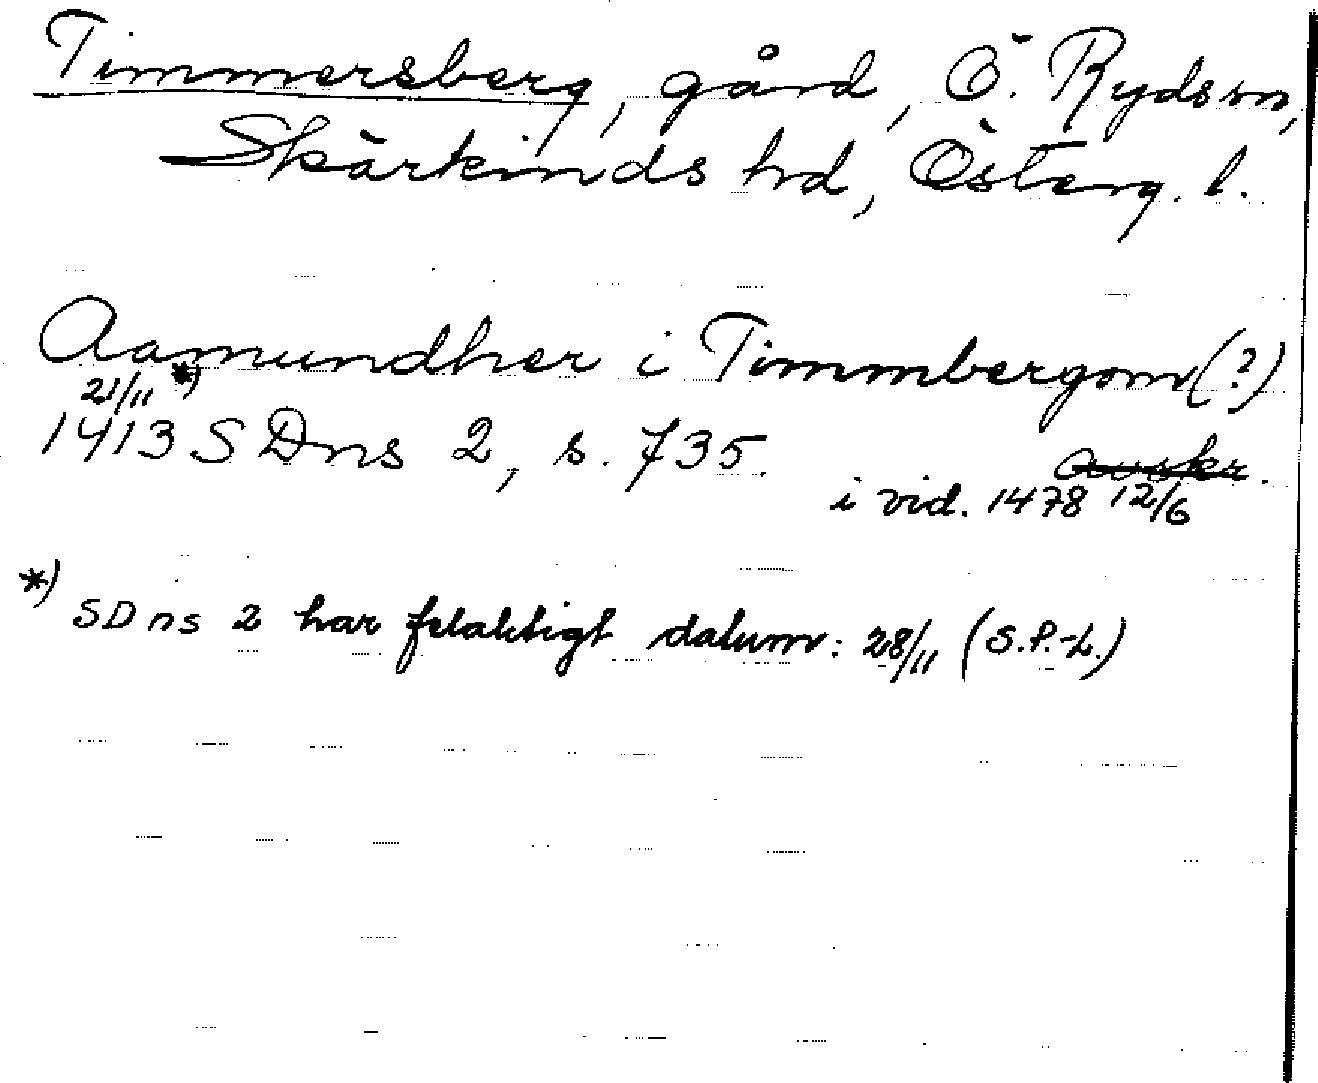 Timmersberg, gård, Ö. Ryds sn,
Skärkinds hd, Österg. l.
Aamundher i Timmbergom (?)
21/11 *)
1413 SDns 2, s. 735. avskr.
i vid. 1478 12/6
*) SDns 2 har felaktigt datum: 28/11 (S.P.-L.)